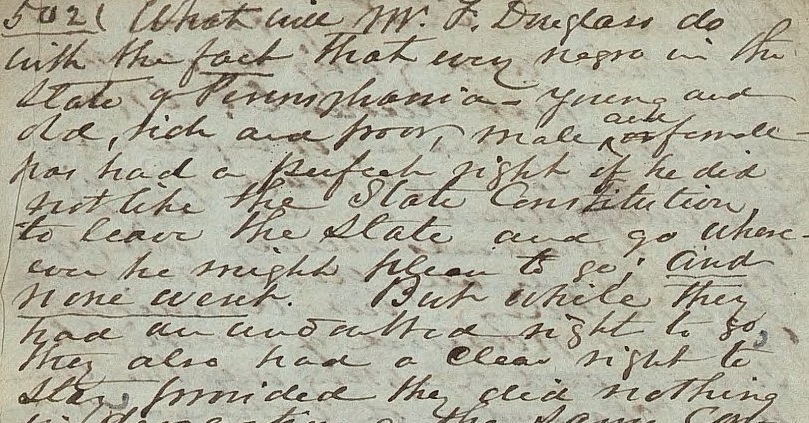 502( What will Mr. F. Douglass do
with the fact that every negro in the
State of Pennsylvania - young and
old, rich and poor, male and or female -
has had a perfect right if he did
not like the State Constitution
to leave the State and go where-
ever he might please to go; and
none went. But while they
had an undoubted right to go,
they also had a clear right to
stay, provided they did nothing
in derogation of the same Con-